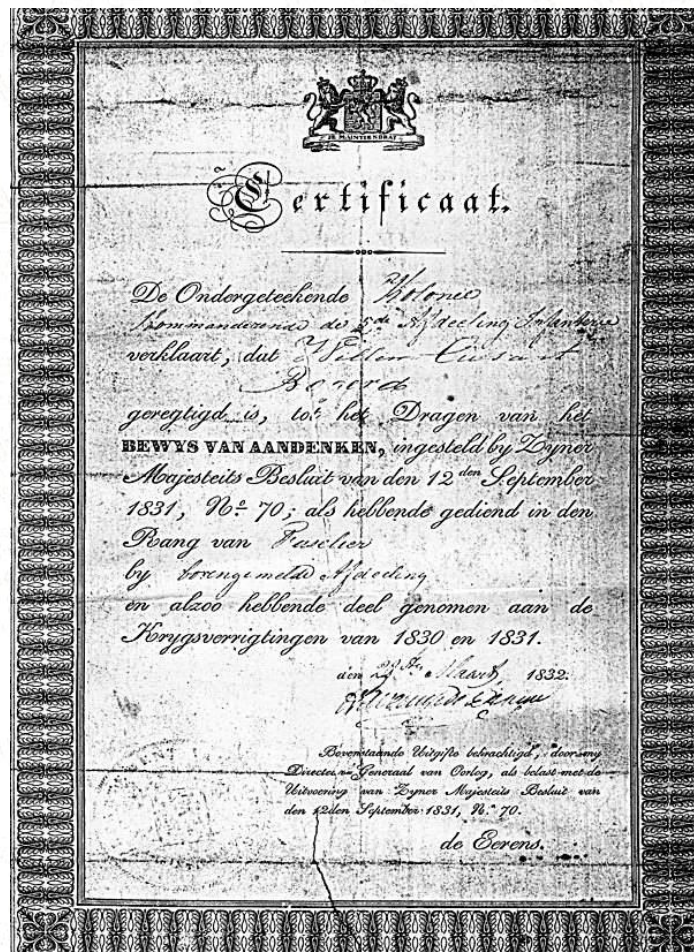 JE MAINTIENDRAI
Certificaat.
De Ondergeteekende Kolonel
Kommanderende de 5de Afdeeling Infanterie
verklaart, dat Willem
geregtigd is, tot het Dragen van het
BEWYS VAN AANDENKEN, ingesteld by Zyner
Majesteits Besluit van den 12den September
1831, No. 70; als hebbende gediend in den
Rang van Fuselier
by bovengemelde Afdeeling
en alzoo hebbende deel genomen aan de
Krygsverrigtingen van 1830 en 1831.
den Maart, 1832.
Bovenstaande Uitgifte bekrachtigd, door my
Directeur-Generaal van Oorlog, als belast met de
Uitvoering van Zyner Majesteits Besluit van
den 12den September 1831, No. 70.
de Eerens.